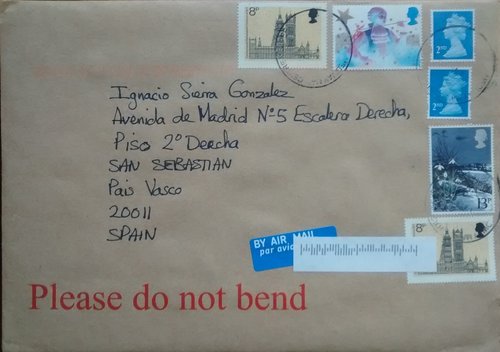 8P
Ignacio Sierra Gonzalez
Avenida de Madrid Nº5 Escalera Derecha,
Piso 2º Derecha
SAN SEBASTIAN
Pais Vasco
20011
SPAIN
2ND
2ND
13P
8P
BY AIR MAIL
par avion
Please do not bend